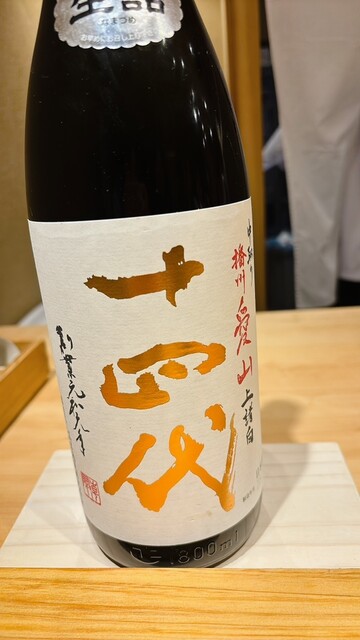 生詰
なまづめ
十四代
中取り
播州
愛山
上諸白
創業元和元年
1,800ml